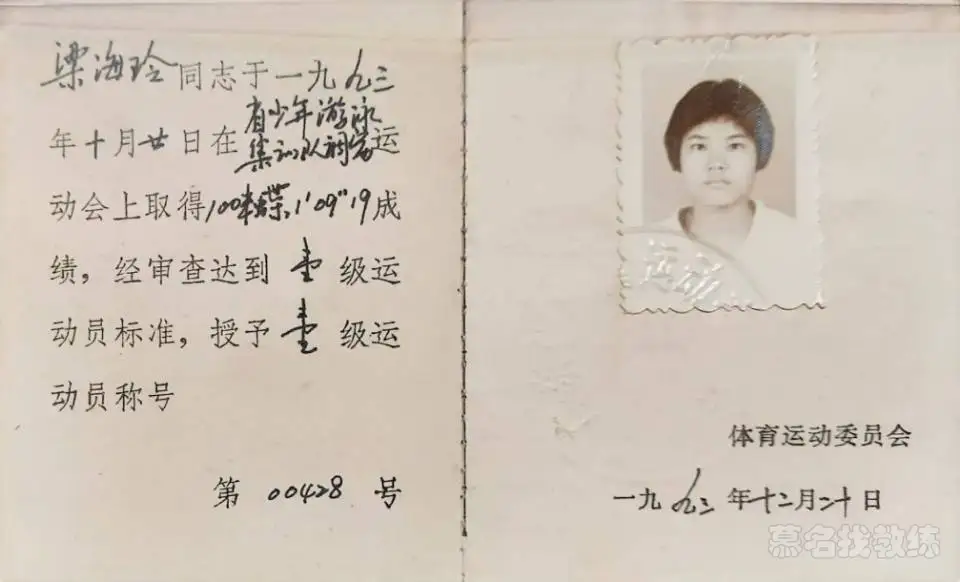 梁海玲同志于一九九三
年十月廿日在省少年游泳
集训队调赛运
动会上取得100米蝶1'09"19成
绩，经审查达到壹级运
动员标准，授予壹级运
动员称号
第 00428 号
运动
体育运动委员会
一九九三年十二月二十日
慕名找教练